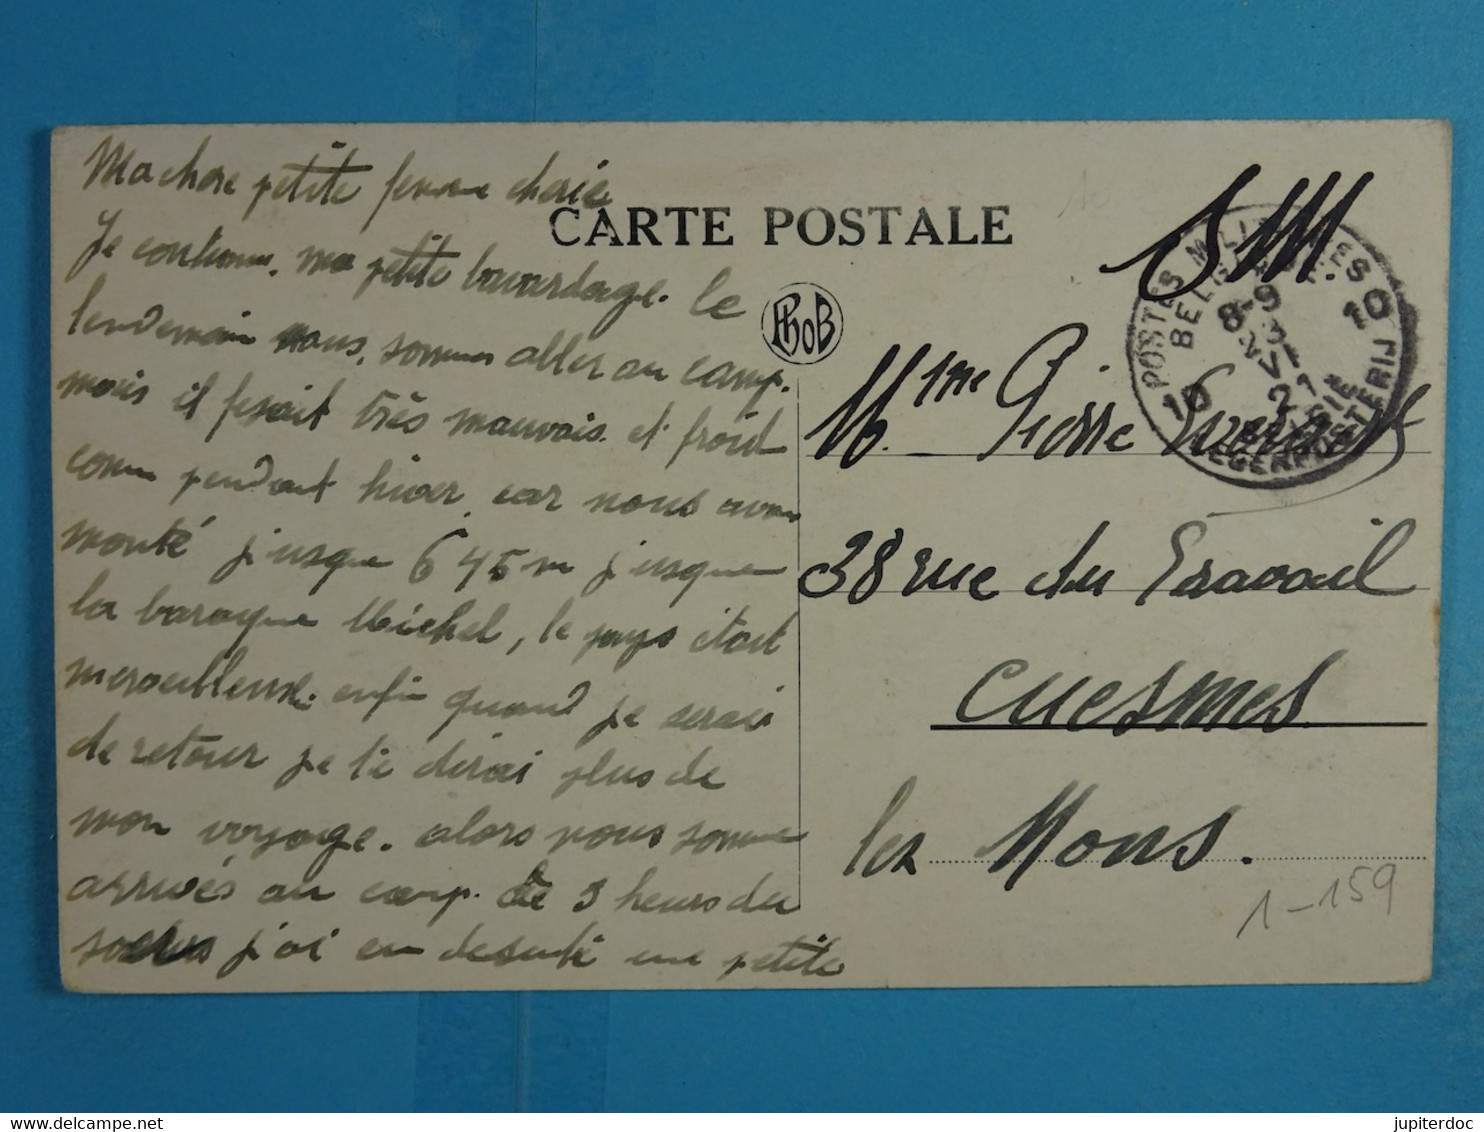 Ma chere petite femme cherie
Je continue, ma petite bavardage. le
lendemain nous, sommes aller au camp.
mais il fesait très mauvais et froid
comm pendant hiver, car nous avons
monté j'usque 645m j'usque
la baraque Michel, le pays était
merveilleuse. enfin quand je serai
de retour je te dirai plus de
mon voyage. alors nous somme
arrivés au camp. de 3 heurs du
j'ai en une petite
CARTE POSTALE
PhoB
SM.
POSTES MILITAIRES
BELGIQUE
10 8-9 10
31
VI
21
BELGIE
LEGERPOSTERIJ
Mme Pierre
38 rue du Travail
Cuesmes
lez Mons.
1-159
jupiterdoc